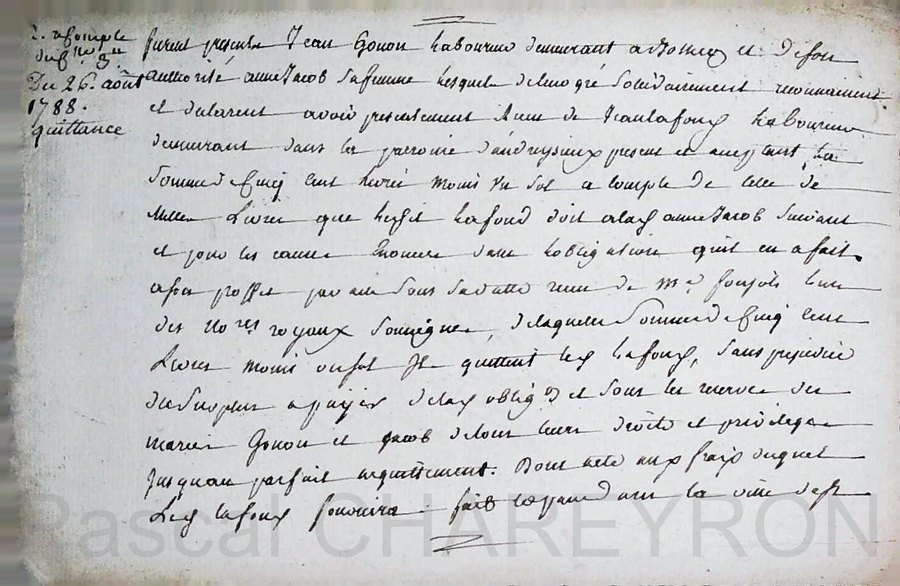 Du 26. août
1788.
quittance
furent presents Jean Gonon laboureur demeurant a et de son
authorité anne Jacob sa femme lesquels de leur gré solidairement reconnaissent
et declarent avoir presentement Receu de Jean lafong laboureur
demeurant dans la parroisse d'andrezieux present et acceptant, la
Somme de Cinq cent livres moins un sol a compte de celle de
Mille Livres que led lafond doit alad anne Jacob Suivant
et pour les causes Enoncées dans lobligation quil en a fait
a son proffit par acte sous sa datte receu de Me l'un
des No.res royaux soussignés, de laquelle Somme de Cinq cent
Livres moins un sol Ils quittent led lafong, sans prejudice
du surplus a payer de lad oblig.on et sous les reserves des
mariés Gonon et jacob de tous leurs droits et privileges
Jusquau parfait acquittement. Dont acte aux frais duquel
Led lafong fournira. fait et passé dans la ville de St
Pascal CHAREYRON